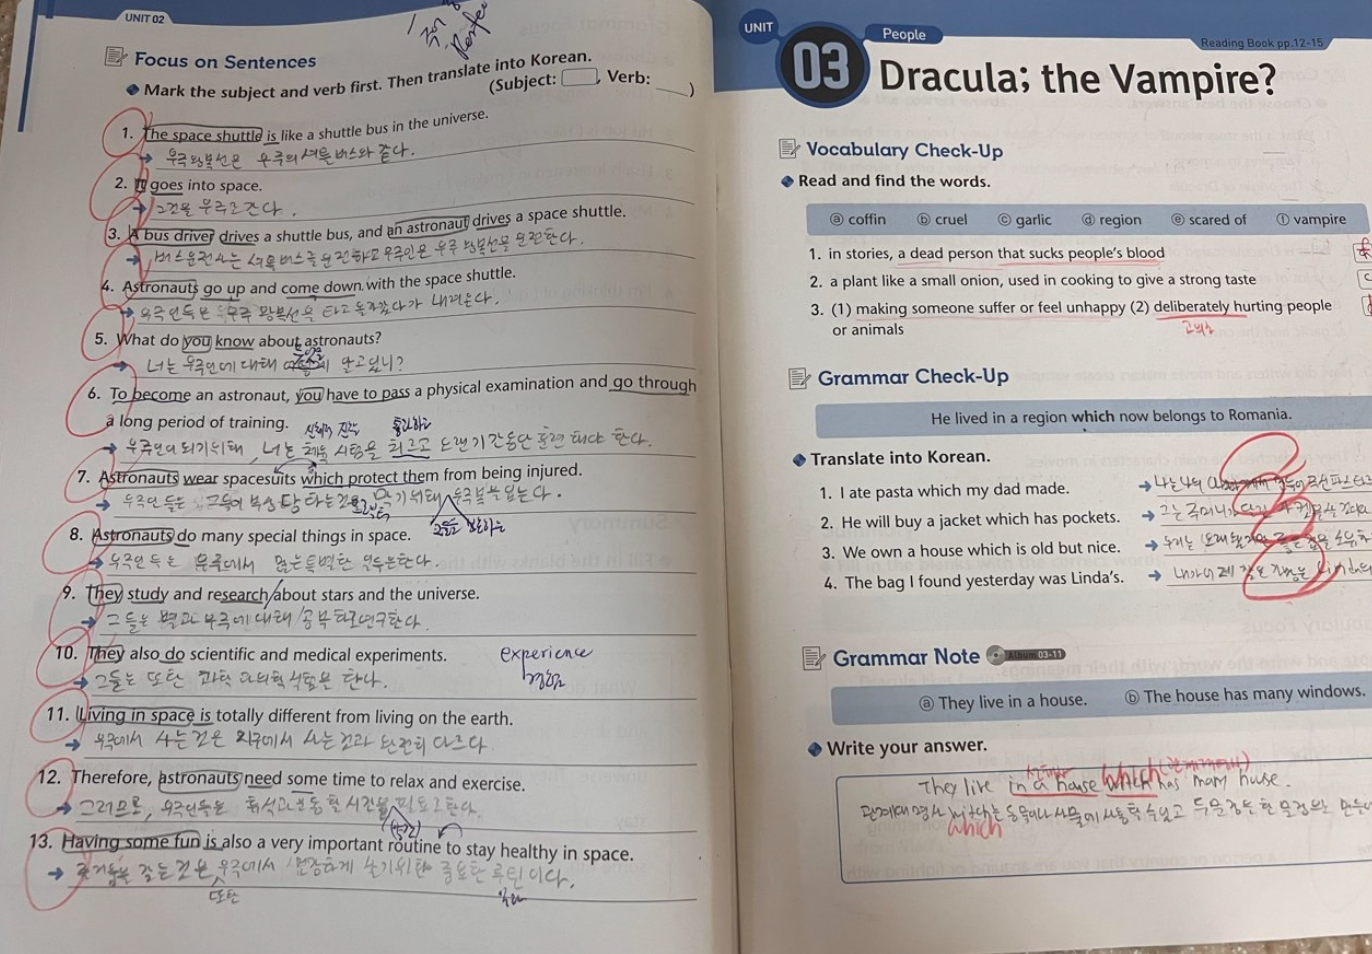 UNIT 02
Perfect
Focus on Sentences
Mark the subject and verb first. Then translate into Korean.
(Subject: , Verb: ___)
1. The space shuttle is like a shuttle bus in the universe.
우주왕복선은 우주의 셔틀버스와 같다.
2. It goes into space.
그것은 우주로 간다.
3. A bus driver drives a shuttle bus, and an astronaut drives a space shuttle.
버스운전사는 셔틀버스를 운전하고 우주인은 우주왕복선을 운전한다.
4. Astronauts go up and come down with the space shuttle.
우주인들은 우주 왕복선을 타고 올라갔다가 내려온다.
5. What do you know about astronauts?
너는 우주인에 대해 알고있니?
6. To become an astronaut, you have to pass a physical examination and go through
a long period of training.
우주인이 되기위해, 너는 시험을 치르고 오랜기간동안 훈련 해야 한다.
7. Astronauts wear spacesuits which protect them from being injured.
우주인들은 그들이 부상당하는 막기위해 우주복을 입는다.
8. Astronauts do many special things in space.
우주인들은 우주에서 많은특별한 일들을한다.
9. They study and research about stars and the universe.
그들은 별과 우주에 대해 공부하고연구한다.
10. They also do scientific and medical experiments.
experience
경험
그들은 또한 과학 의학 실험을 한다.
11. Living in space is totally different from living on the earth.
우주에서 사는것은 지구에서 사는것과 완전히 다르다
12. Therefore, astronauts need some time to relax and exercise.
그러므로, 우주인들은 휴식과운동할 시간을 필요로한다.
13. Having some fun is also a very important routine to stay healthy in space.
즐거움을 갖는것은 우주에서 건강하게 살기위한 중요한 루틴이다.
또한
UNIT
03
People
Reading Book pp.12-15
Dracula; the Vampire?
Vocabulary Check-Up
Read and find the words.
ⓐ coffin ⓑ cruel ⓒ garlic ⓓ region ⓔ scared of ⓕ vampire
1. in stories, a dead person that sucks people's blood
2. a plant like a small onion, used in cooking to give a strong taste
c
3. (1) making someone suffer or feel unhappy (2) deliberately hurting people
or animals
고의로
Grammar Check-Up
He lived in a region which now belongs to Romania.
Translate into Korean.
1. I ate pasta which my dad made.
나는 나의
2. He will buy a jacket which has pockets.
그는 주머니가
3. We own a house which is old but nice.
우리는
4. The bag I found yesterday was Linda's.
내가 어제
Grammar Note
03-11
ⓐ They live in a house. ⓑ The house has many windows.
Write your answer.
They live in a house which has many house.
관계대명사 witch는 동물이나 사물에 사용할 수 있고 두 문장을 한 문장으로
which